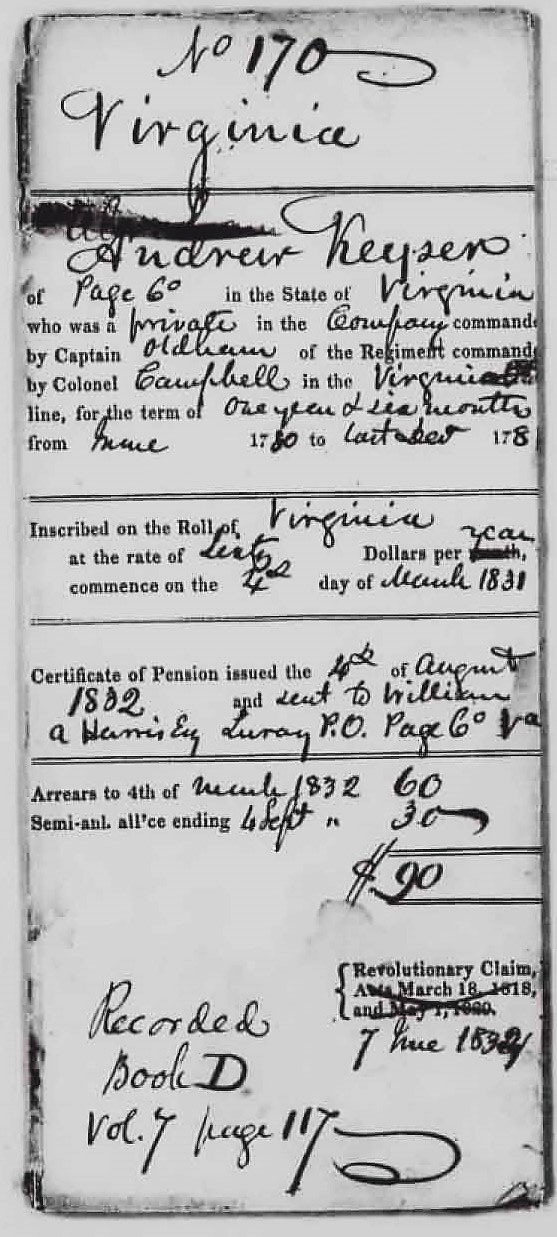 No 170
Virginia
Andrew Keyser
of Page Co in the State of Virginia
who was a private in the Company command
by Captain Oldham of the Regiment command
by Colonel Campbell in the Virginia
line, for the term of One year & six months
from June 1780 to last Dec 178
Inscribed on the Roll of Virginia
at the rate of Sixty Dollars per year month,
commence on the 4th day of March 1831
Certificate of Pension issued the 4th of August
1832 and sent to William
A Harris Esq Luray P.O. Page Co Va
Arrears to 4th of March 1832 60
Semi-anl. all'ce ending 4 Sept " 30
$ 90
Revolutionary Claim,
Acts March 18, 1818,
and May 1, 1820.
7 June 1832
Recorded
Book D
Vol. 7 page 117